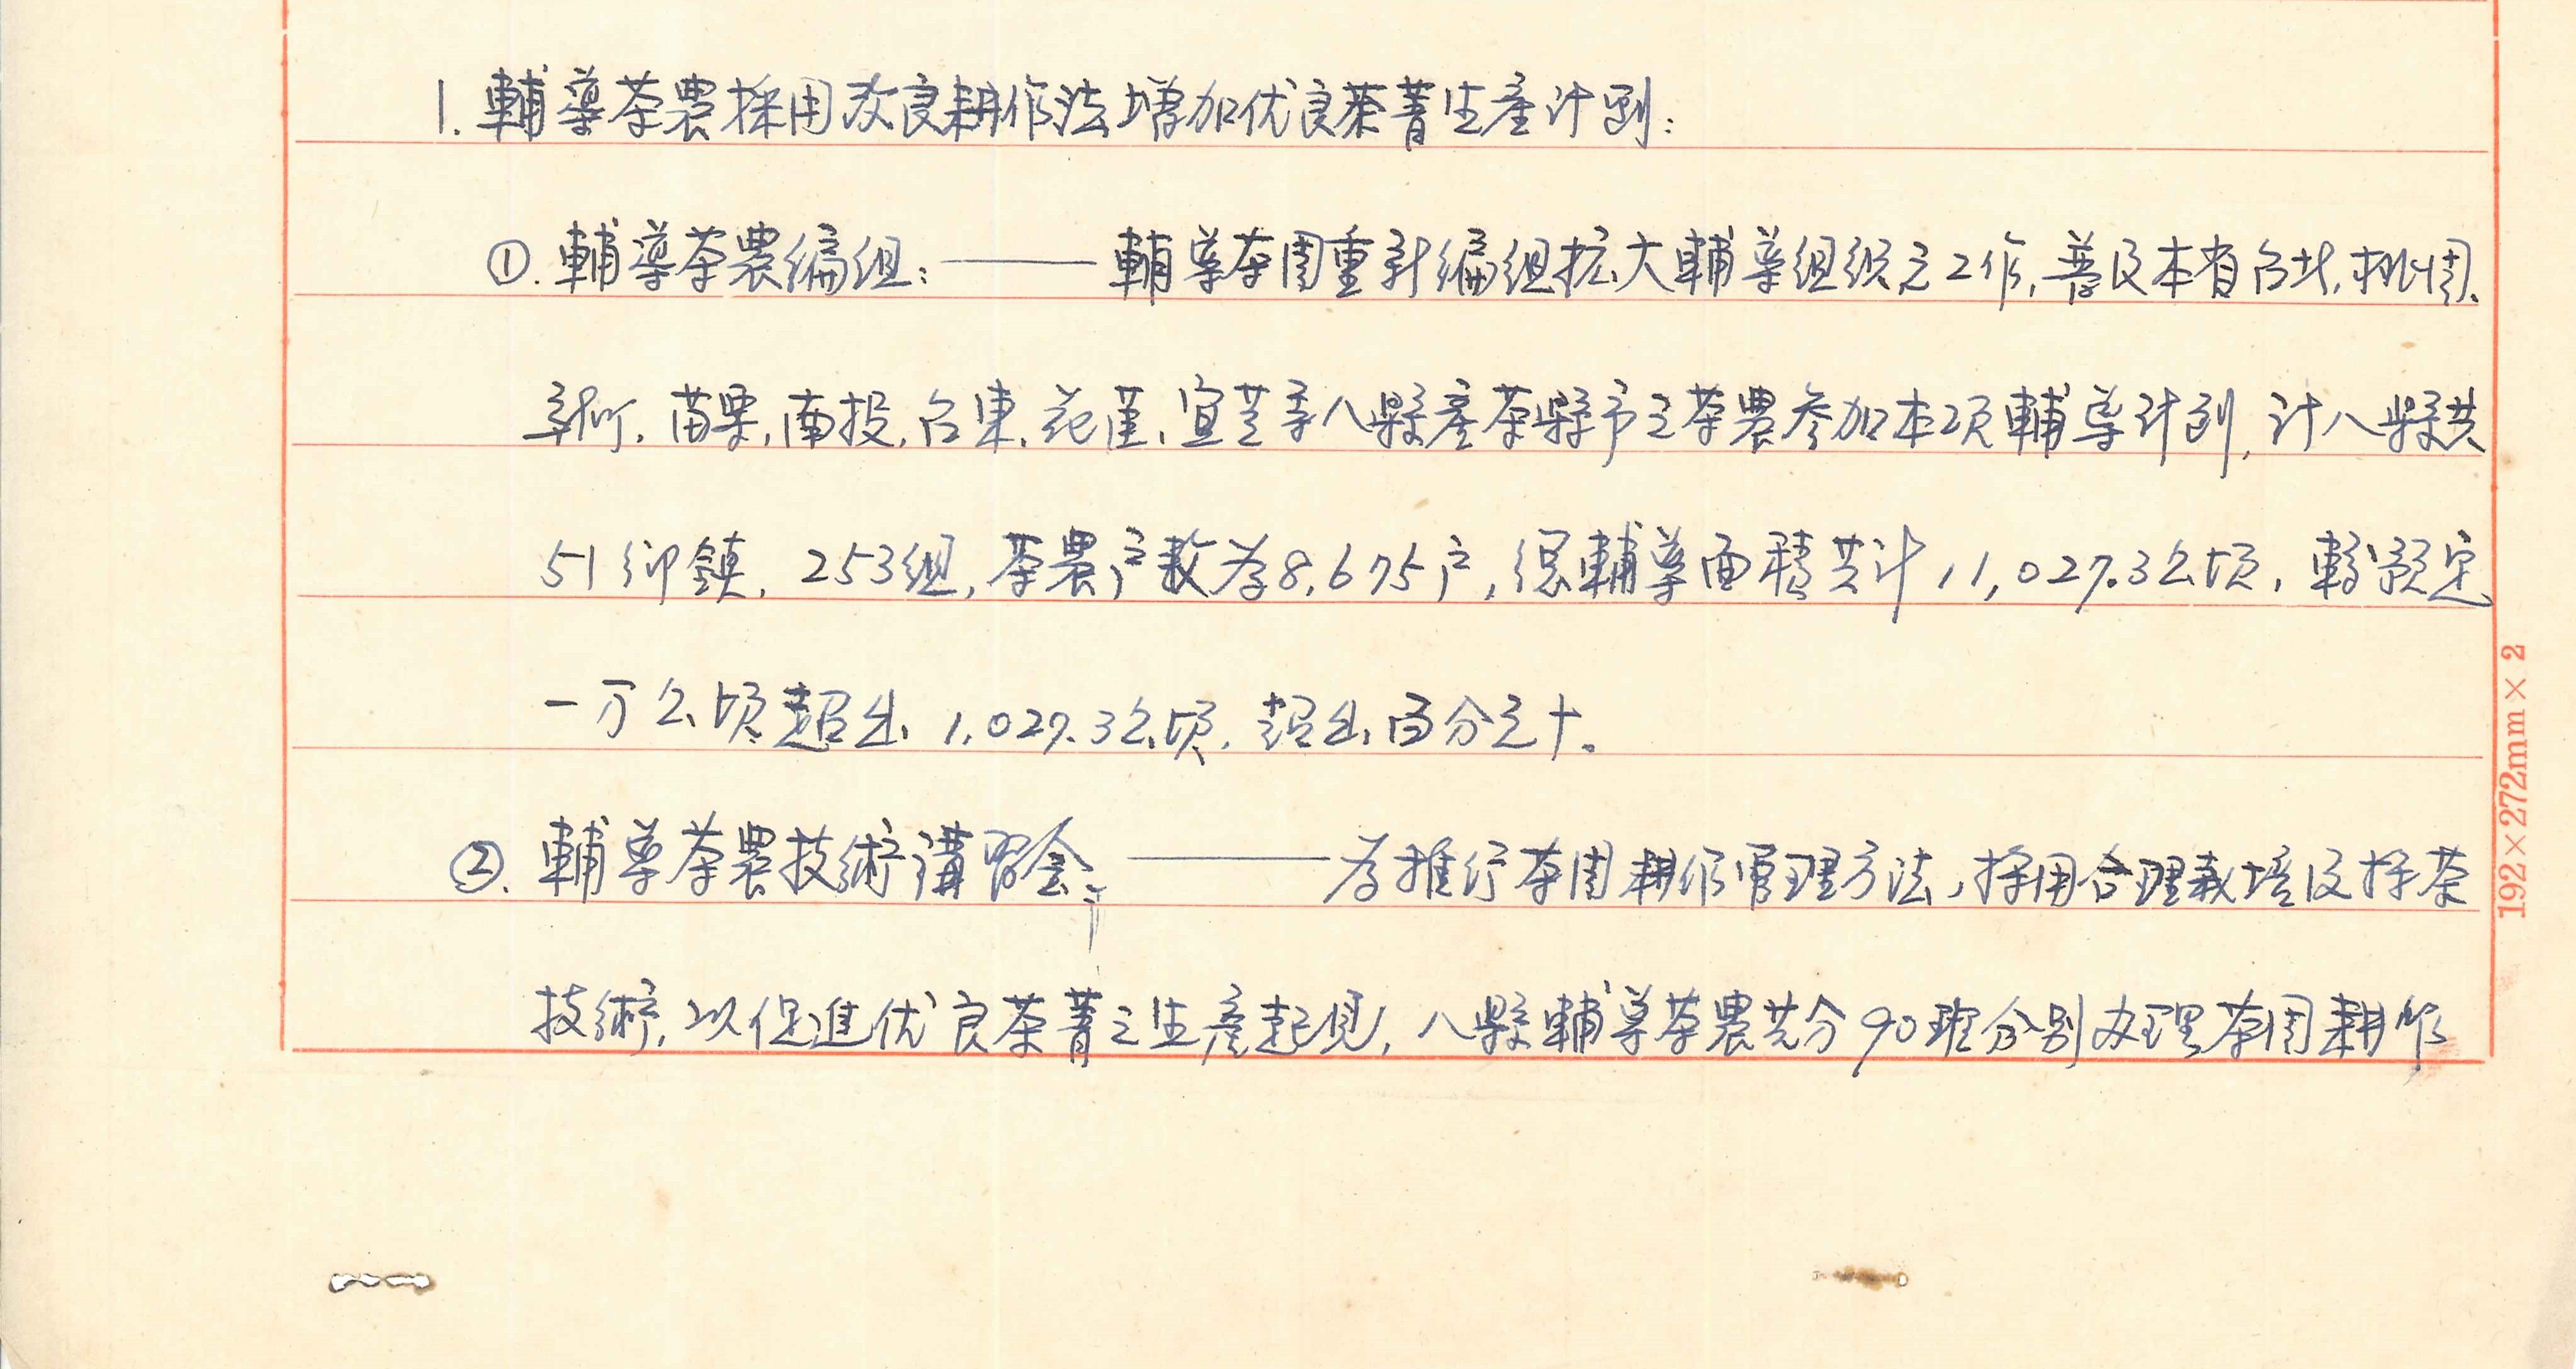 1. 輔導茶農採用改良耕作法增加优良茶菁生產計劃:
①. 輔導茶農編組:——輔導茶園重新編組扩大輔導組织之工作,普及本省台北,桃園、
新竹,苗栗,南投,台東,花蓮,宜芝等八縣產茶縣市之茶農参加本項輔導计劃,计八縣共
51鄉鎮,253組,茶農户数為8,675户,總輔導面積共计11,027.3公頃,較預定
一万公頃超出1,027.3公頃,超出百分之十。
②. 輔導茶農技術講習会:——為推行茶園耕作管理方法,採用合理栽培及採茶
技術,以促進优良茶菁之生產起見,八縣輔導茶農共分90班分别办理茶園耕作
192×272mm×2